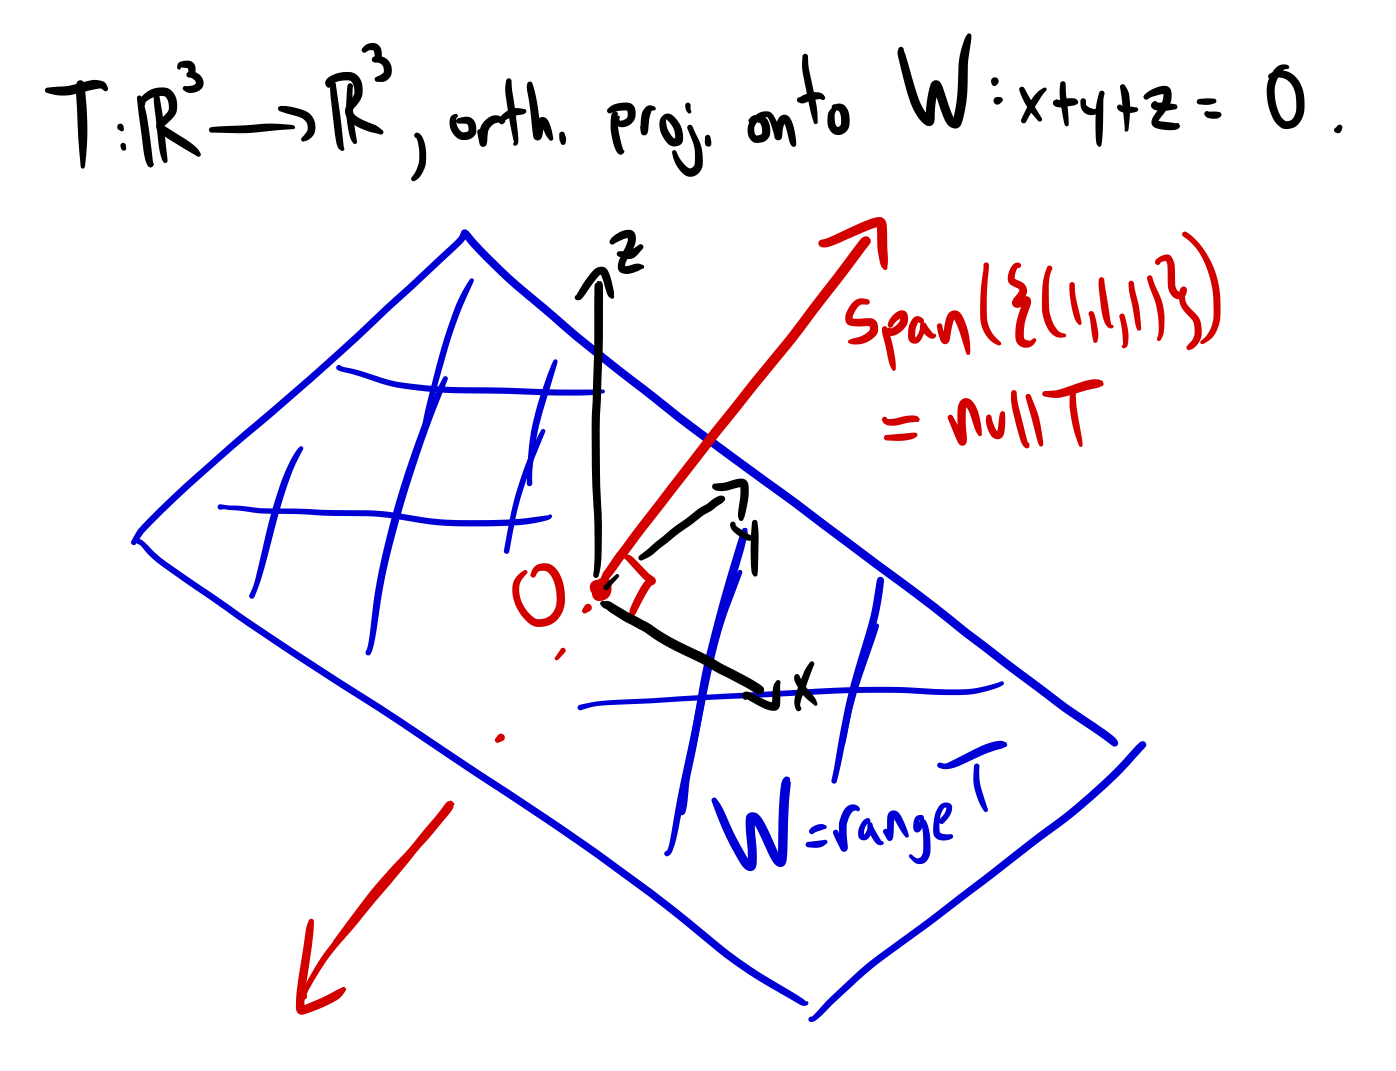 T:ℝ³→ℝ³, orth. proj. onto W: x+y+z=0.
z
span({(1,1,1)})
= null T
y
0
x
W = range T